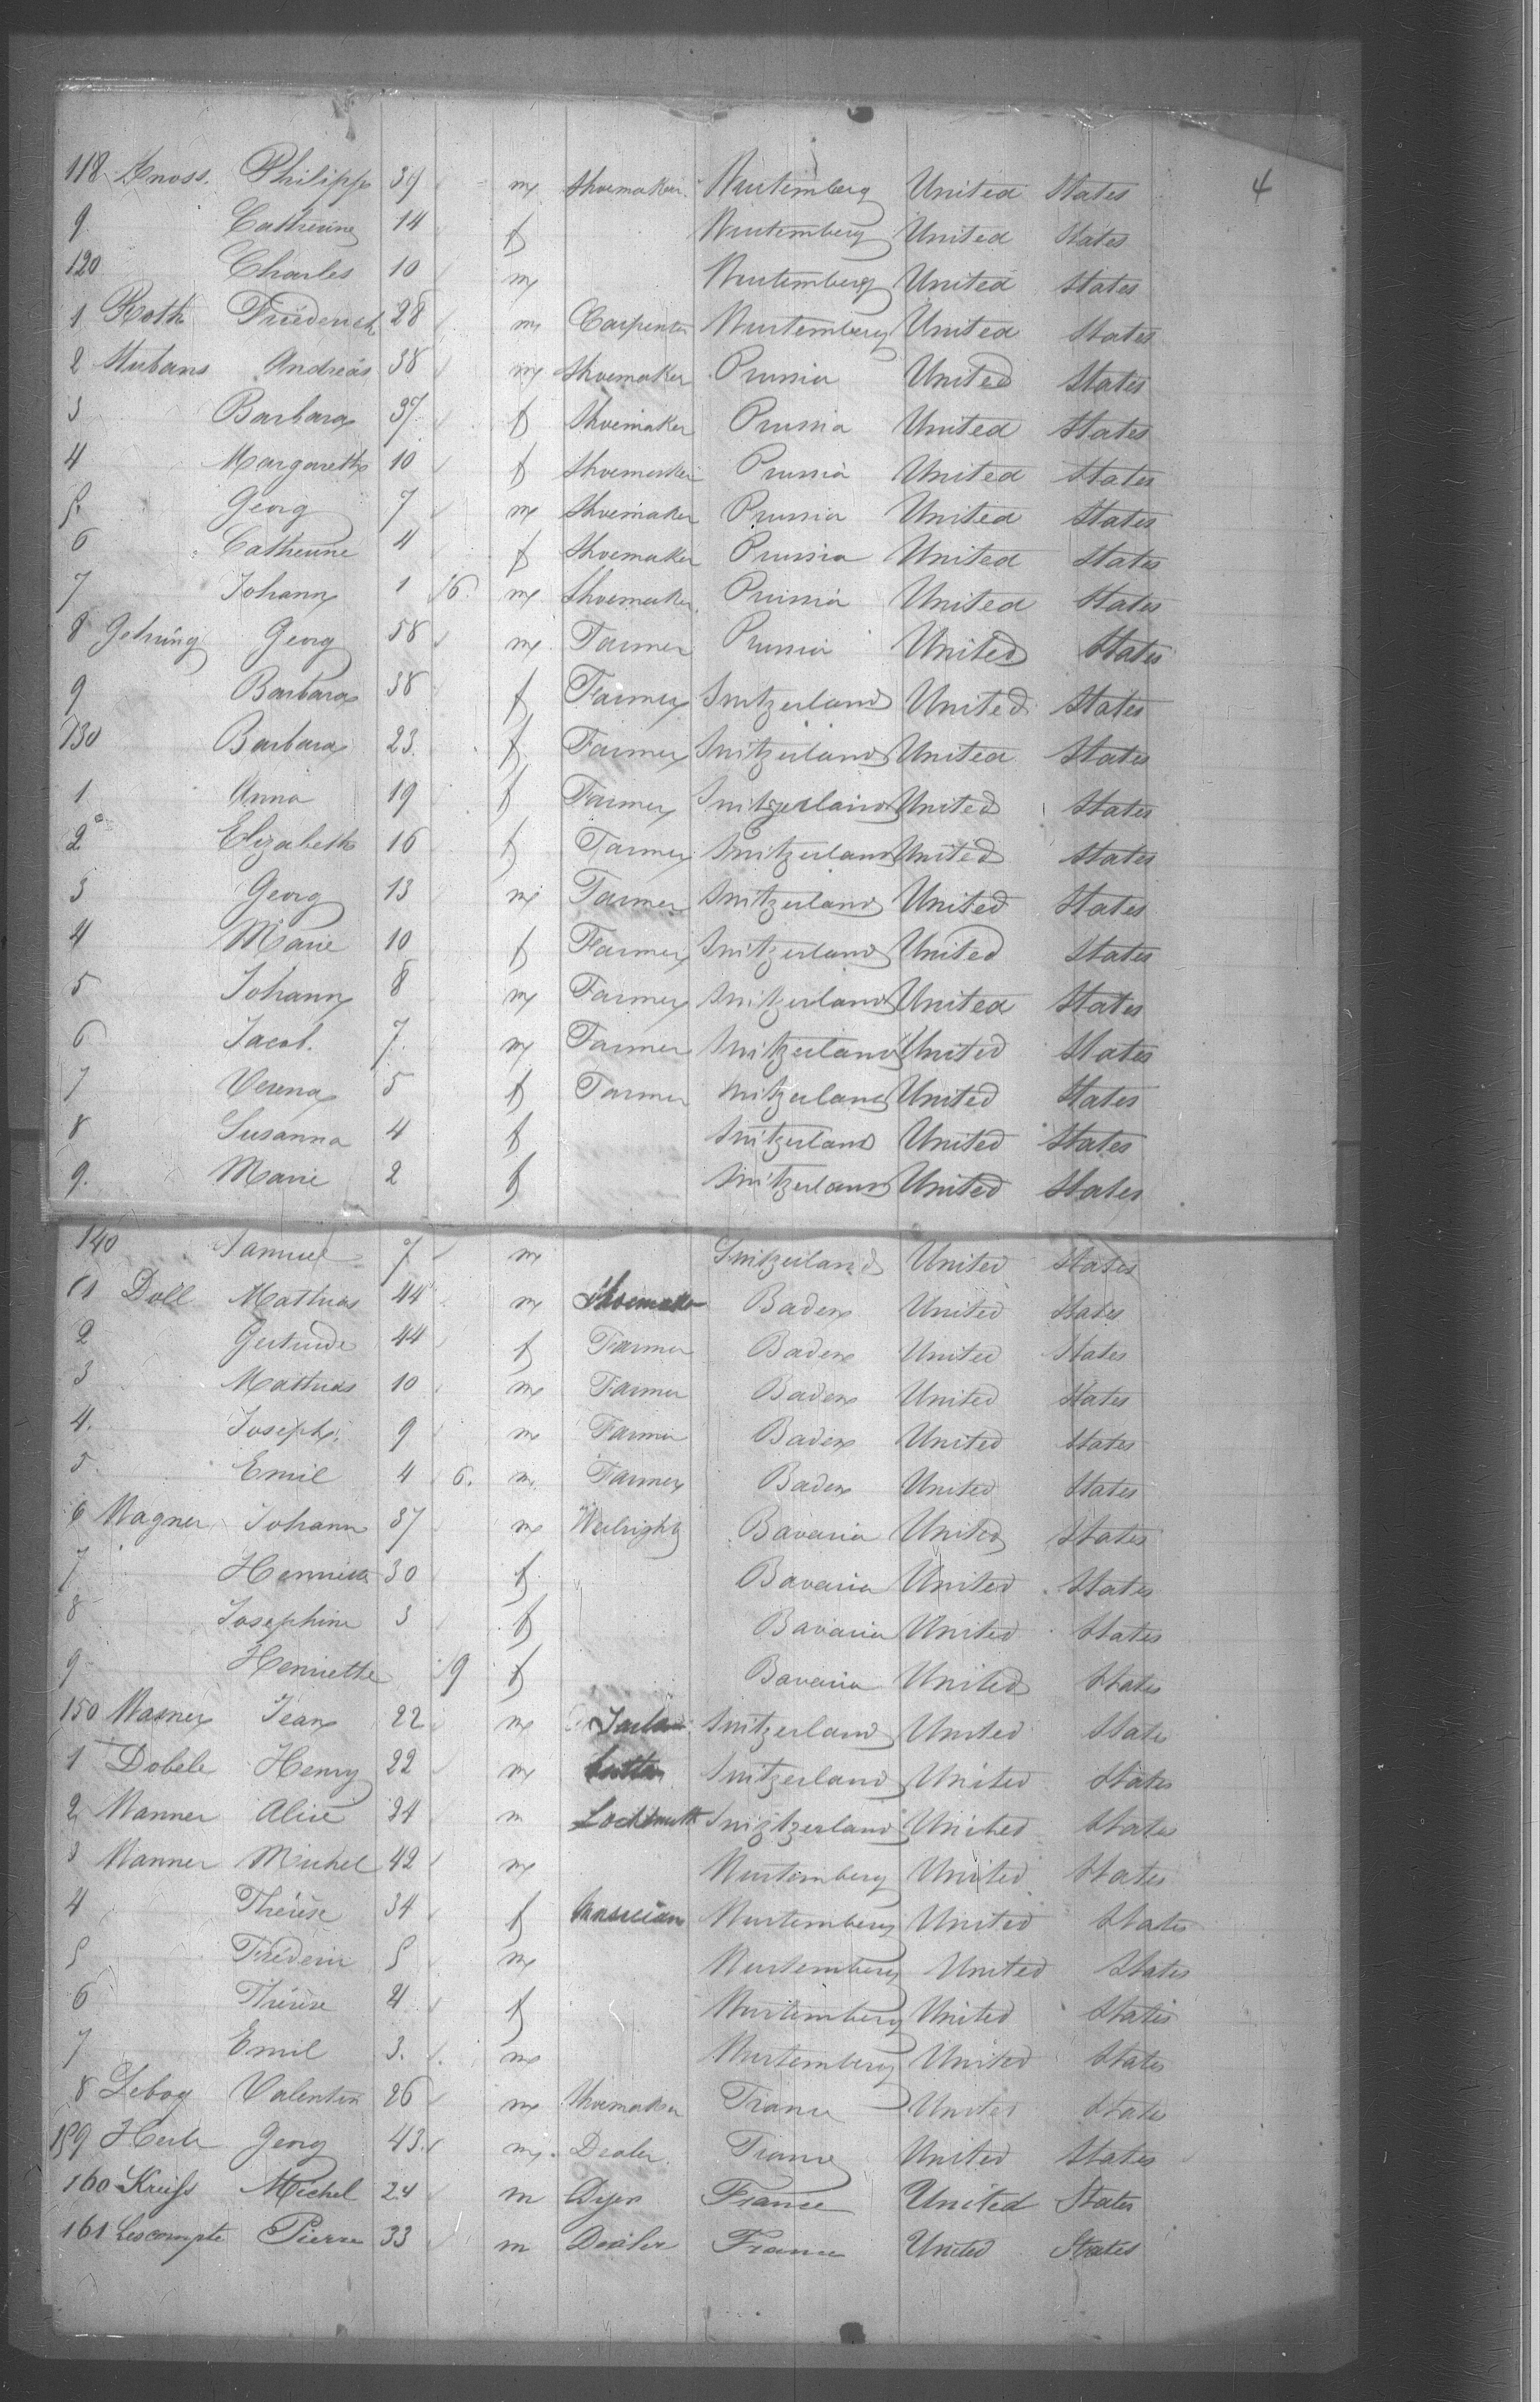 4
118 Knoss. Philipp 39 m Shoemaker Wurtemberg United States
9 Catherine 14 f Wurtemberg United States
120 Charles 10 m Wurtemberg United States
1 Roth Friederich 28 m Carpenter Wurtemberg United States
2 Andreas 38 m Shoemaker Prussia United States
3 Barbara 37 f Shoemaker Prussia United States
4 Margareth 10 f Shoemaker Prussia United States
5. Georg 7 m Shoemaker Prussia United States
6 Catherine 4 f Shoemaker Prussia United States
7 Johann 1 6. m Shoemaker Prussia United States
8 Gehring Georg 58 m Farmer Prussia United States
9 Barbara 38 f Farmer Switzerland United States
130 Barbara 23. f Farmer Switzerland United States
1 Anna 19 f Farmer Switzerland United States
2 Elizabeth 16 f Farmer Switzerland United States
3 Georg 13 m Farmer Switzerland United States
4 Marie 10 f Farmer Switzerland United States
5 Johann 8 m Farmer Switzerland United States
6 Jacob. 7. m Farmer Switzerland United States
7 Verena 5 f Farmer Switzerland United States
8 Susanna 4 f Switzerland United States
9. Marie 2 f Switzerland United States
140 Samuel 7 m Switzerland United States
1 Doll Mathias 44 m Shoemaker Baden United States
2 Gertrude 44 f Farmer Baden United States
3 Mathias 10 m Farmer Baden United States
4. Joseph. 9 m Farmer Baden United States
5 Emil 4 6. m Farmer Baden United States
6 Wagner Johann 37 m Bavaria United States
7 30 f Bavaria United States
8 Josephine 3 f Bavaria United States
9 Henriette 9 f Bavaria United States
150 Jean 22 m Switzerland United States
1 Dobele Henry 22 m Switzerland United States
2 Wanner 24 m Locksmith Switzerland United States
3 Wanner Michel 42 m Wurtemberg United States
4 Thérèse 34 f Wurtemberg United States
5 Fréderic 5 m Wurtemberg United States
6 Thérèse 4 f Wurtemberg United States
7 Emil 3. m Wurtemberg United States
8 Valentin 26 m Shoemaker France United States
159 Herb Georg 43 m Dealer France United States
160 Kreifs Michel 24 m Dyer France United States
161 Lecompte Pierre 33 m Dealer France United States